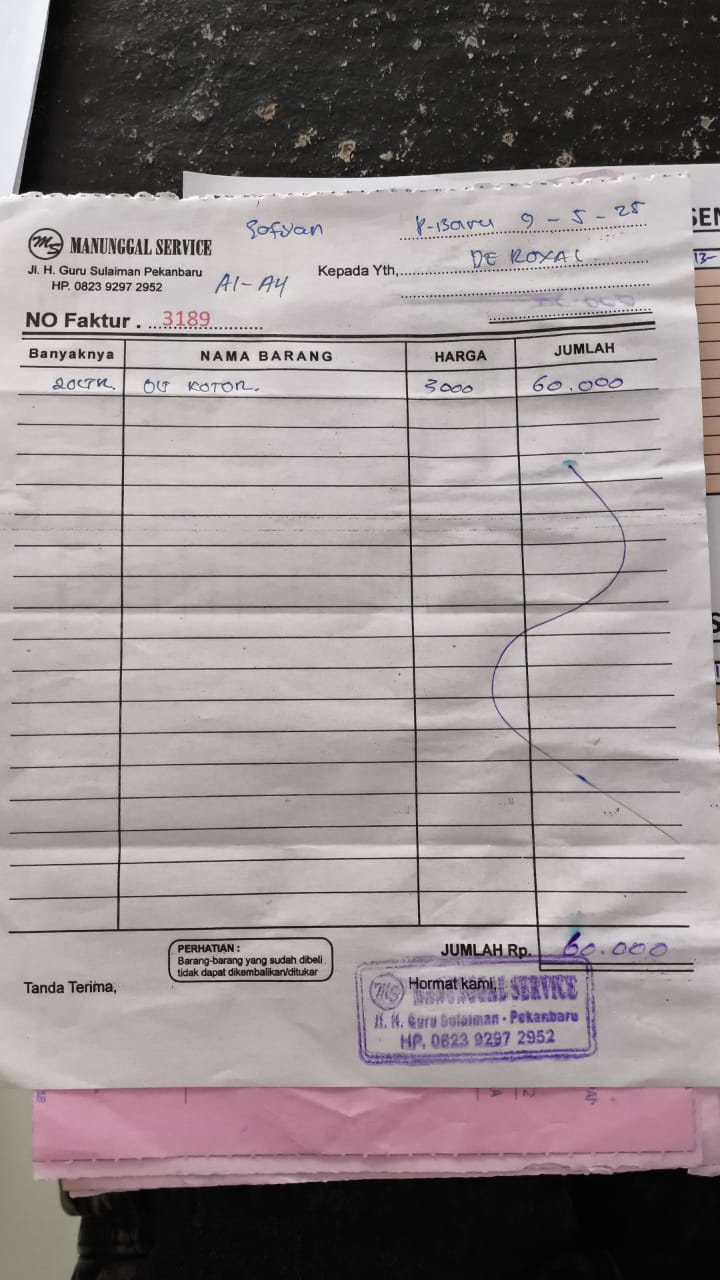 Sofyan
P-Baru 9 - 5 - 25
MS MANUNGGAL SERVICE
Jl. H. Guru Sulaiman Pekanbaru
HP. 0823 9297 2952
A1-A4
Kepada Yth, DE ROYAL
NO Faktur . 3189
Banyaknya NAMA BARANG HARGA JUMLAH
20LTR. OLI KOTOR. 3000 60.000
PERHATIAN :
Barang-barang yang sudah dibeli
tidak dapat dikembalikan/ditukar
JUMLAH Rp. 60.000
Tanda Terima,
Hormat kami,
MS MANUNGGAL SERVICE
Jl. H. Guru Sulaiman - Pekanbaru
HP. 0823 9297 2952